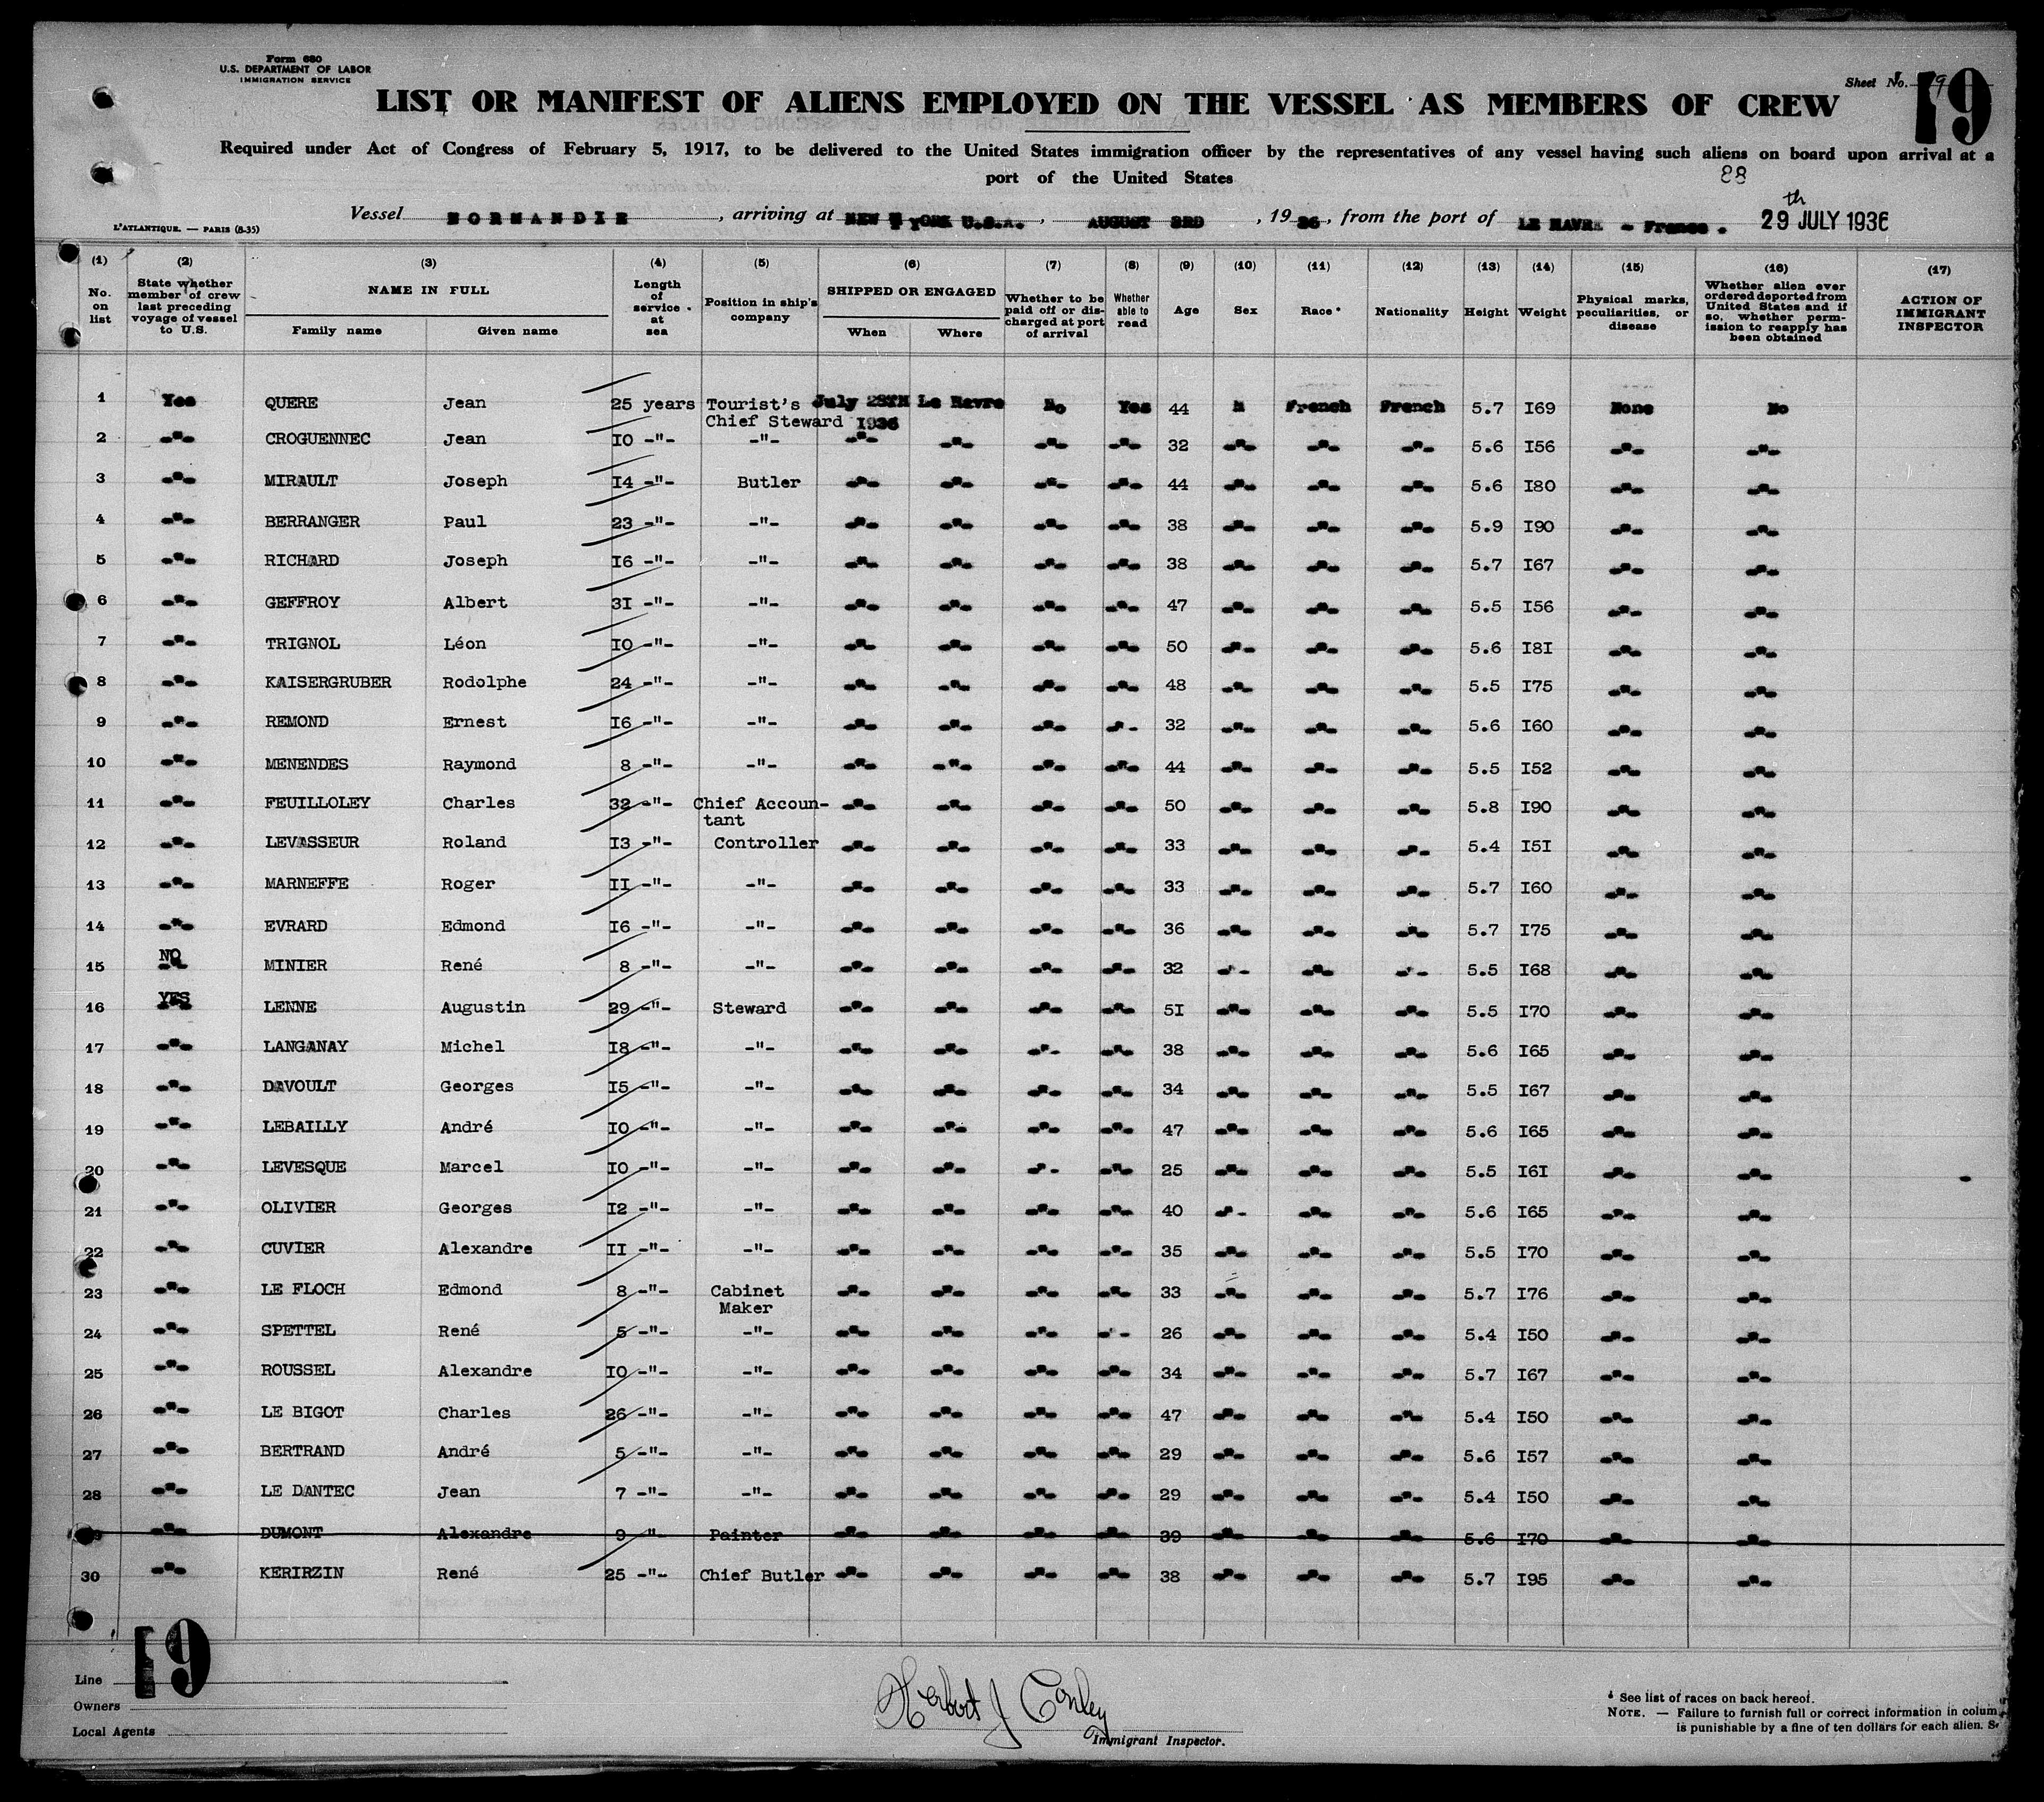 Form 680
U.S. DEPARTMENT OF LABOR
IMMIGRATION SERVICE
Sheet No. 19
19
LIST OR MANIFEST OF ALIENS EMPLOYED ON THE VESSEL AS MEMBERS OF CREW
Required under Act of Congress of February 5, 1917, to be delivered to the United States immigration officer by the representatives of any vessel having such aliens on board upon arrival at a
port of the United States
88
Vessel NORMANDIE, arriving at NEW YORK U.S.A., AUGUST 3RD, 1936, from the port of LE HAVRE - France. 29 th JULY 1936
L'ATLANTIQUE. — PARIS (8-35)
(1) No. on list (2) State whether member of crew last preceding voyage of vessel to U.S. (3) NAME IN FULL Family name Given name (4) Length of service at sea (5) Position in ship's company (6) SHIPPED OR ENGAGED When Where (7) Whether to be paid off or discharged at port of arrival (8) Whether able to read (9) Age (10) Sex (11) Race* (12) Nationality (13) Height (14) Weight (15) Physical marks, peculiarities, or disease (16) Whether alien ever ordered deported from United States and if so, whether permission to reapply has been obtained (17) ACTION OF IMMIGRANT INSPECTOR
1 Yes QUERE Jean 25 years Tourist's Chief Steward July 28TH 1936 Le Havre No Yes 44 M French French 5.7 I69 None No
2 -"- CROGUENNEC Jean IO -"- -"- -"- -"- -"- -"- 32 -"- -"- -"- 5.6 I56 -"- -"-
3 -"- MIRAULT Joseph I4 -"- Butler -"- -"- -"- -"- 44 -"- -"- -"- 5.6 I80 -"- -"-
4 -"- BERRANGER Paul 23 -"- -"- -"- -"- -"- -"- 38 -"- -"- -"- 5.9 I90 -"- -"-
5 -"- RICHARD Joseph I6 -"- -"- -"- -"- -"- -"- 38 -"- -"- -"- 5.7 I67 -"- -"-
6 -"- GEFFROY Albert 3I -"- -"- -"- -"- -"- -"- 47 -"- -"- -"- 5.5 I56 -"- -"-
7 -"- TRIGNOL Léon IO -"- -"- -"- -"- -"- -"- 50 -"- -"- -"- 5.6 I8I -"- -"-
8 -"- KAISERGRUBER Rodolphe 24 -"- -"- -"- -"- -"- -"- 48 -"- -"- -"- 5.5 I75 -"- -"-
9 -"- REMOND Ernest I6 -"- -"- -"- -"- -"- -"- 32 -"- -"- -"- 5.6 I60 -"- -"-
10 -"- MENENDES Raymond 8 -"- -"- -"- -"- -"- -"- 44 -"- -"- -"- 5.5 I52 -"- -"-
11 -"- FEUILLOLEY Charles 32 -"- Chief Accoun-tant -"- -"- -"- -"- 50 -"- -"- -"- 5.8 I90 -"- -"-
12 -"- LEVASSEUR Roland I3 -"- Controller -"- -"- -"- -"- 33 -"- -"- -"- 5.4 I5I -"- -"-
13 -"- MARNEFFE Roger II -"- -"- -"- -"- -"- -"- 33 -"- -"- -"- 5.7 I60 -"- -"-
14 -"- EVRARD Edmond I6 -"- -"- -"- -"- -"- -"- 36 -"- -"- -"- 5.7 I75 -"- -"-
15 NO MINIER René 8 -"- -"- -"- -"- -"- -"- 32 -"- -"- -"- 5.5 I68 -"- -"-
16 YES LENNE Augustin 29 -"- Steward -"- -"- -"- -"- 5I -"- -"- -"- 5.5 I70 -"- -"-
17 -"- LANGANAY Michel I8 -"- -"- -"- -"- -"- -"- 38 -"- -"- -"- 5.6 I65 -"- -"-
18 -"- DAVOULT Georges I5 -"- -"- -"- -"- -"- -"- 34 -"- -"- -"- 5.5 I67 -"- -"-
19 -"- LEBAILLY André IO -"- -"- -"- -"- -"- -"- 47 -"- -"- -"- 5.6 I65 -"- -"-
20 -"- LEVESQUE Marcel IO -"- -"- -"- -"- -"- -"- 25 -"- -"- -"- 5.5 I6I -"- -"-
21 -"- OLIVIER Georges I2 -"- -"- -"- -"- -"- -"- 40 -"- -"- -"- 5.6 I65 -"- -"-
22 -"- CUVIER Alexandre II -"- -"- -"- -"- -"- -"- 35 -"- -"- -"- 5.5 I70 -"- -"-
23 -"- LE FLOCH Edmond 8 -"- Cabinet Maker -"- -"- -"- -"- 33 -"- -"- -"- 5.7 I76 -"- -"-
24 -"- SPETTEL René 5 -"- -"- -"- -"- -"- -"- 26 -"- -"- -"- 5.4 I50 -"- -"-
25 -"- ROUSSEL Alexandre IO -"- -"- -"- -"- -"- -"- 34 -"- -"- -"- 5.7 I67 -"- -"-
26 -"- LE BIGOT Charles 26 -"- -"- -"- -"- -"- -"- 47 -"- -"- -"- 5.4 I50 -"- -"-
27 -"- BERTRAND André 5 -"- -"- -"- -"- -"- -"- 29 -"- -"- -"- 5.6 I57 -"- -"-
28 -"- LE DANTEC Jean 7 -"- -"- -"- -"- -"- -"- 29 -"- -"- -"- 5.4 I50 -"- -"-
-"- DUMONT Alexandre 9 -"- Painter -"- -"- -"- -"- 39 -"- -"- -"- 5.6 I70 -"- -"-
30 -"- KERIRZIN René 25 -"- Chief Butler -"- -"- -"- -"- 38 -"- -"- -"- 5.7 I95 -"- -"-
19
Line
Owners
Local Agents
Herbert J Conley
Immigrant Inspector.
* See list of races on back hereof.
NOTE. — Failure to furnish full or correct information in colum
is punishable by a fine of ten dollars for each alien. S